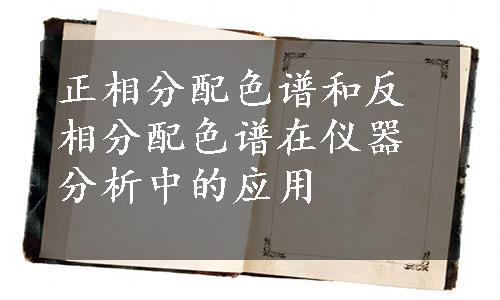 正相分配色谱和反
相分配色谱在仪器
分析中的应用